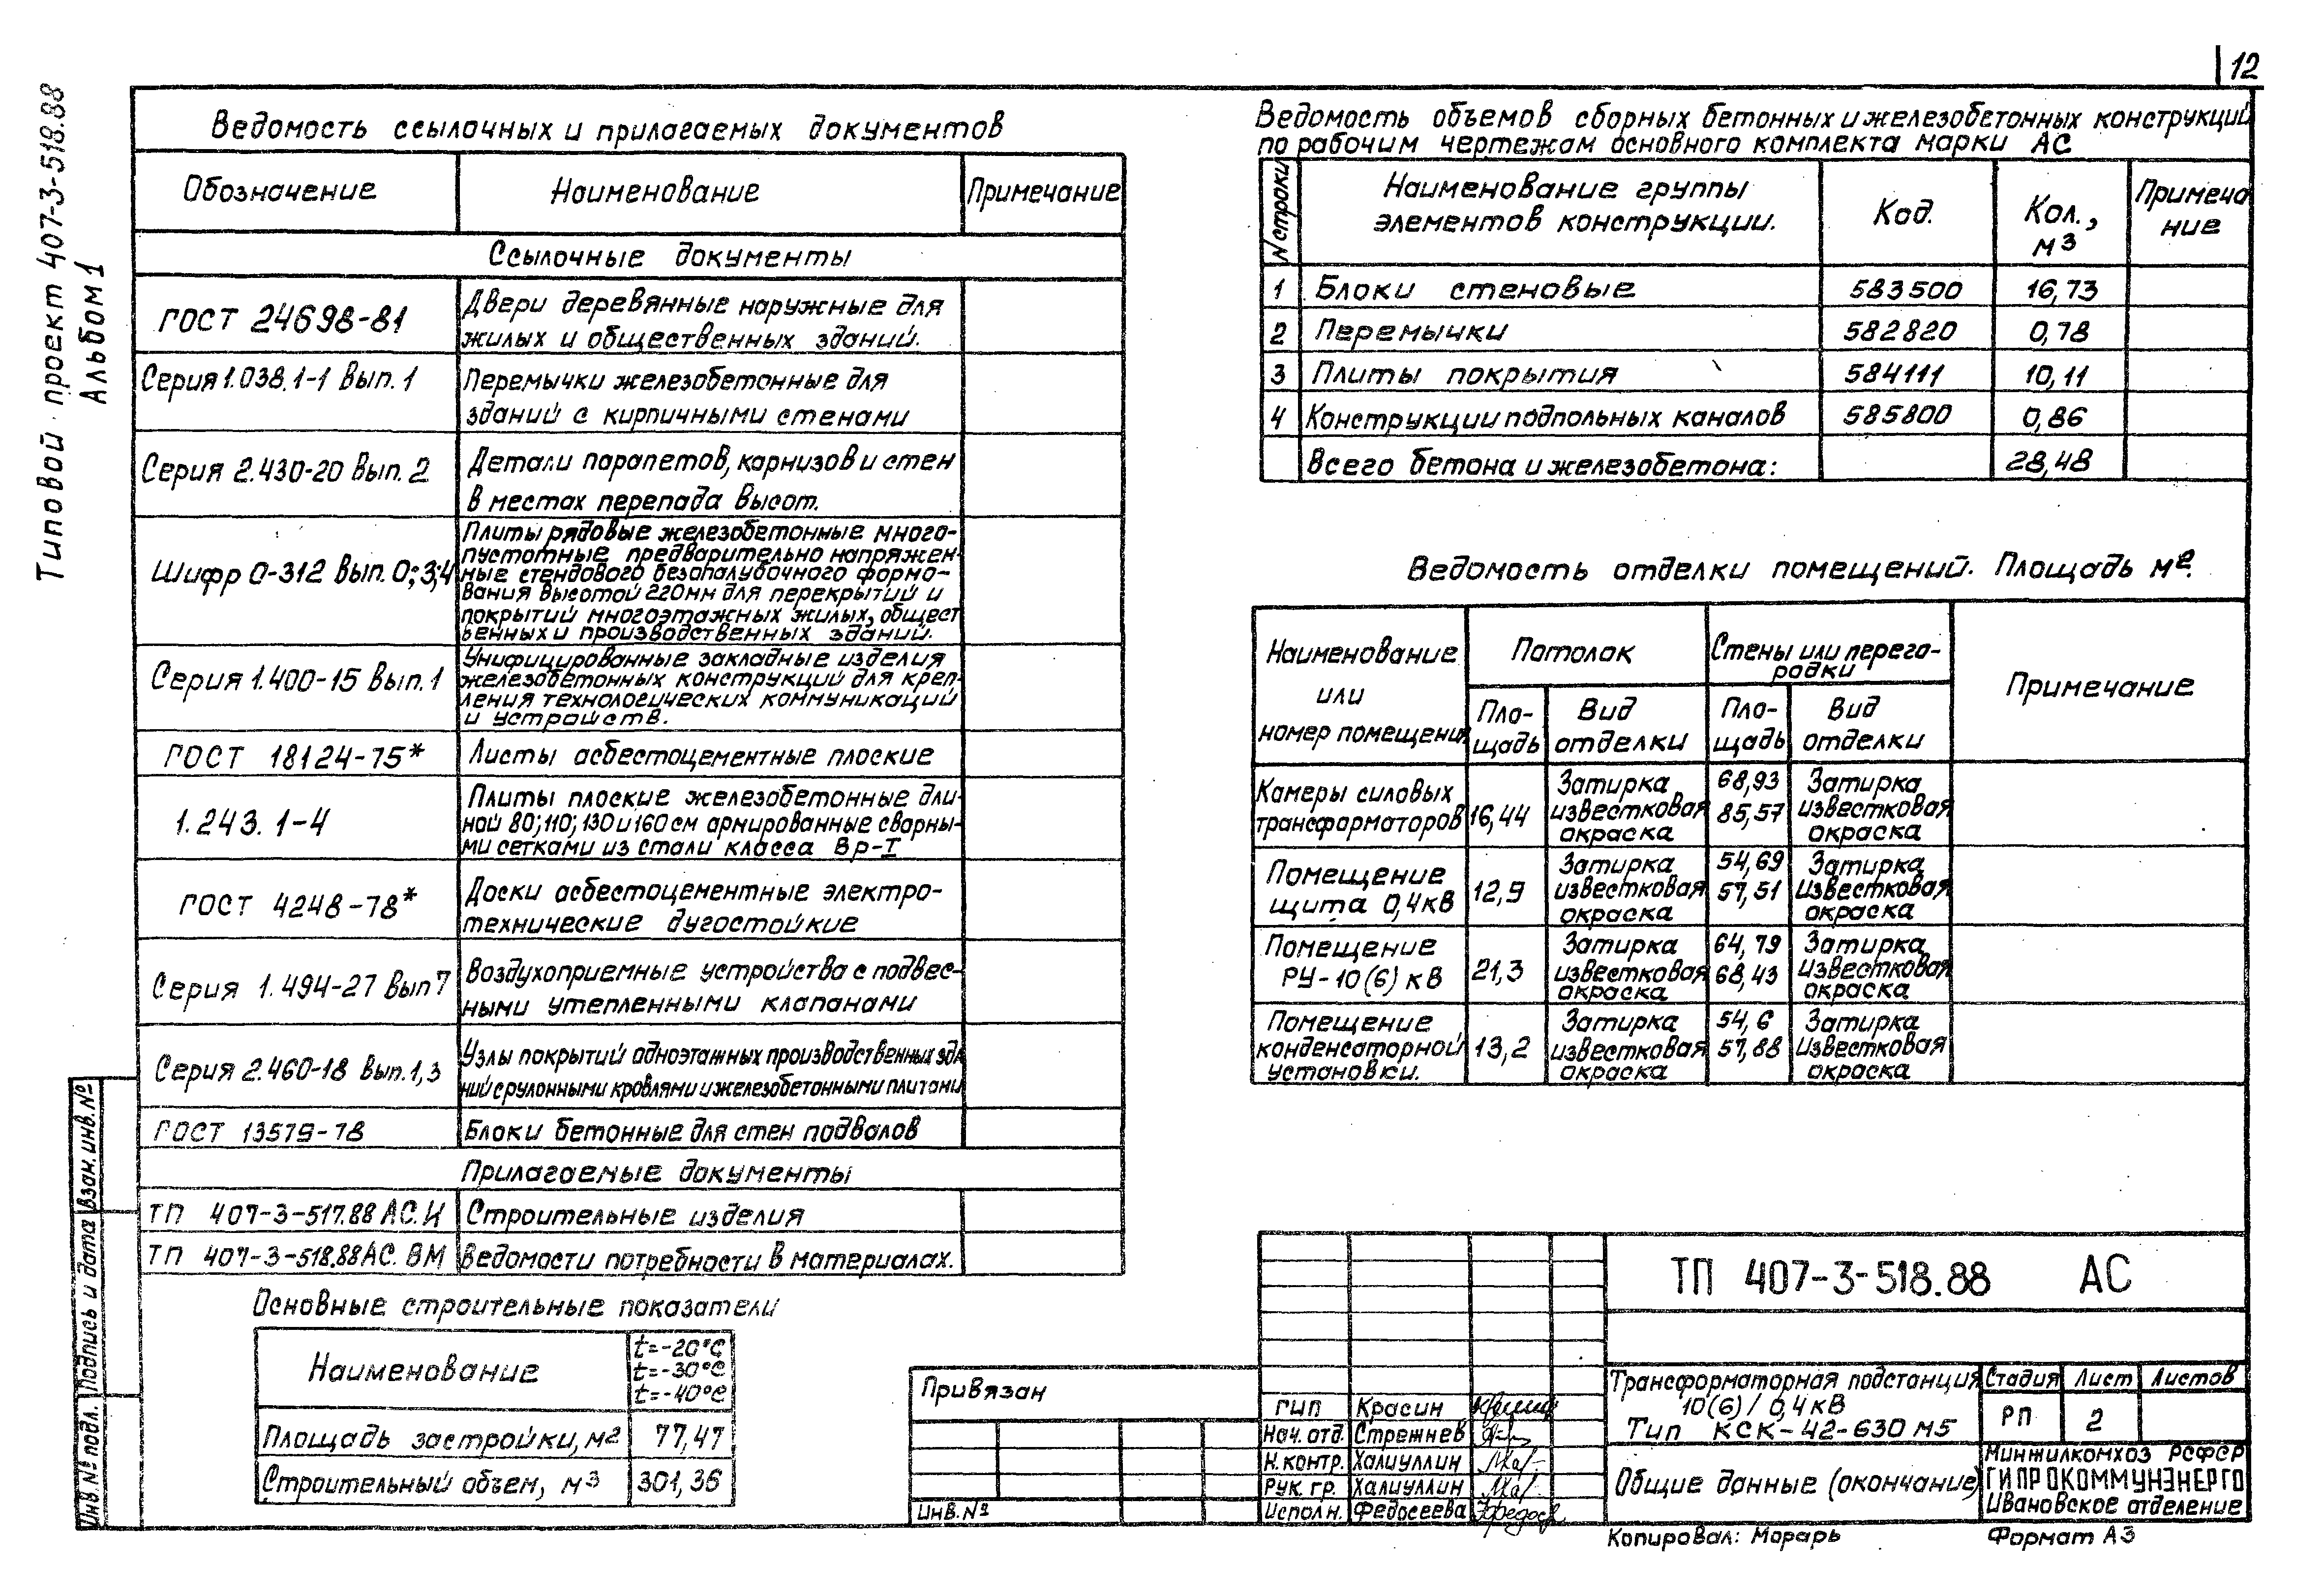 12
Типовой проект 407-3-518.88
Альбом 1
Ведомость ссылочных и прилагаемых документов
Обозначение Наименование Примечание
Ссылочные документы
ГОСТ 24698-81 Двери деревянные наружные для
жилых и общественных зданий.
Серия 1.038.1-1 Вып. 1 Перемычки железобетонные для
зданий с кирпичными стенами
Серия 2.430-20 Вып. 2 Детали парапетов, карнизов и стен
в местах перепада высот.
Шифр 0-312 Вып. 0;3;4 Плиты рядовые железобетонные много-
пустотные предварительно напряжен-
ные стендового безопалубочного формо-
вания высотой 220мм для перекрытий и
покрытий многоэтажных жилых, общест
венных и производственных зданий.
Серия 1.400-15 Вып. 1 Унифицированные закладные изделия
железобетонных конструкций для креп-
ления технологических коммуникаций
и устройств.
ГОСТ 18124-75* Листы асбестоцементные плоские
1.243.1-4 Плиты плоские железобетонные дли-
ной 80; 110; 130 и 160 см армированные сварны-
ми сетками из стали класса Вр-I
ГОСТ 4248-78* Доски асбестоцементные электро-
технические дугостойкие
Серия 1.494-27 Вып 7 Воздухоприемные устройства с подвес-
ными утепленными клапанами
Серия 2.460-18 Вып. 1,3 Узлы покрытий одноэтажных производственных зда
ний с рулонными кровлями и железобетонными плитами
ГОСТ 13579-78 Блоки бетонные для стен подвалов
Прилагаемые документы
ТП 407-3-517.88 АС.И Строительные изделия
ТП 407-3-518.88 АС. ВМ Ведомости потребности в материалах.
Основные строительные показатели
Наименование
t=-20°С
t=-30°С
t=-40°С
Площадь застройки, м2 77,47
Строительный объем, м3 301,36
Ведомость объемов сборных бетонных и железобетонных конструкций
по рабочим чертежам основного комплекта марки АС
N строки Наименование группы элементов конструкции. Код. Кол., м3 Примеча ние
1 Блоки стеновые 583500 16,73
2 Перемычки 582820 0,78
3 Плиты покрытия 584111 10,11
4 Конструкции подпольных каналов 585800 0,86
Всего бетона и железобетона: 28,48
Ведомость отделки помещений. Площадь м2.
Наименование или номер помещения Потолок Стены или перего- родки Примечание
Пло- щадь Вид отделки Пло- щадь Вид отделки
Камеры силовых Затирка 68,93 Затирка
трансформаторов 16,44 известковая 85,57 известковая
окраска окраска
Помещение Затирка 54,69 Затирка
щита 0,4кВ 12,9 известковая 57,51 известковая
окраска окраска
Помещение Затирка 64,79 Затирка
РУ-10(6) кВ 21,3 известковая 68,43 известковая
окраска окраска
Помещение Затирка 54,6 Затирка
конденсаторной 13,2 известковая 57,88 известковая
установки. окраска окраска
Привязан
Инв. №
ТП 407-3-518.88 АС
Гип Красин
Нач. отд. Стрежнев
Н. контр. Халиуллин
Рук. гр. Халиуллин
Исполн. Федосеева
Трансформаторная подстанция
10(6)/0,4кВ
Тип КСК-42-630 м5
Стадия Лист Листов
РП 2
Общие данные (окончание)
Минжилкомхоз РСФСР
ГИПРОКОММУНЭНЕРГО
Ивановское отделение
Копировал: Морарь Формат А3
Инв. № подл. Подпись и дата Взам. инв. №